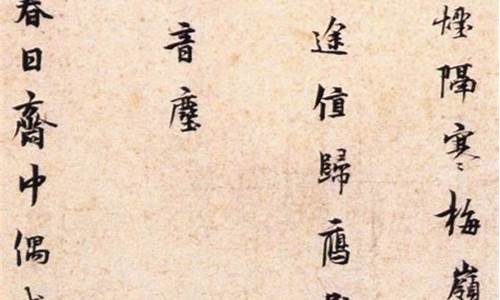 煙隔寒梅嶺
途值歸鴈
音塵
春日齋中偶